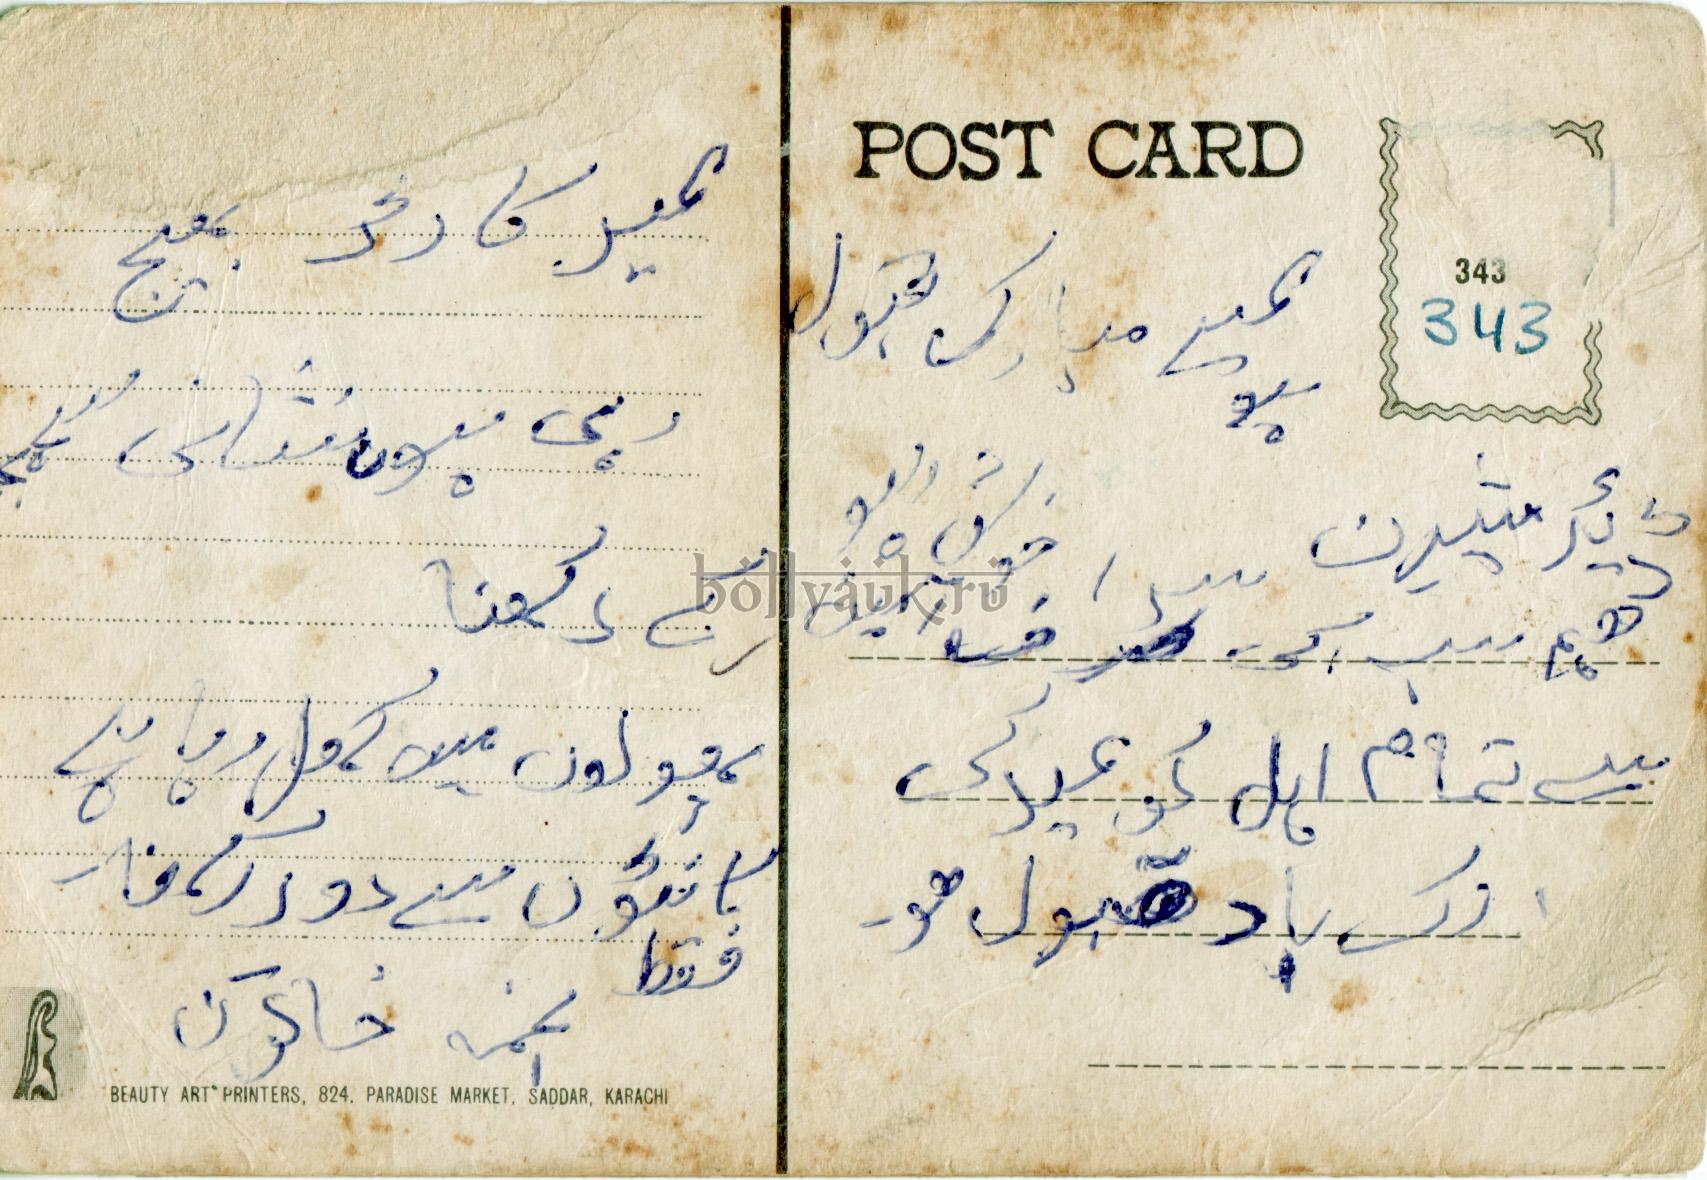 POST CARD
343
343
عید مبارک قبول
ہو
ڈیئر شیرین سدا خوش رہو
آمین
ہم سب کی طرف
سے تمام اہل کو عید کی
رک باد قبول ہو۔
عید کارڈ بھیج
رہی ہوں نشانی سمجھ
کے رکھنا
پھولوں میں کھل رہا ہے
کانٹوں سے دور رکھنا۔
فقط
نجمہ خاتون
BEAUTY ART PRINTERS, 824, PARADISE MARKET, SADDAR, KARACHI
bollyauk.ru